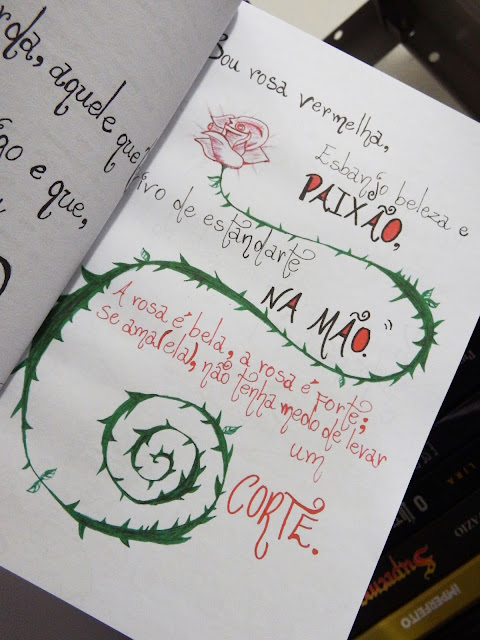 rda, aquele que
go e que,
Sou rosa vermelha,
Esbanjo beleza e
PAIXÃO,
ivo de estandarte
NA MÃO."
A rosa é bela, a rosa é forte;
se ama(ela), não tenha medo de levar
um
CORTE.
IMPERFEITO